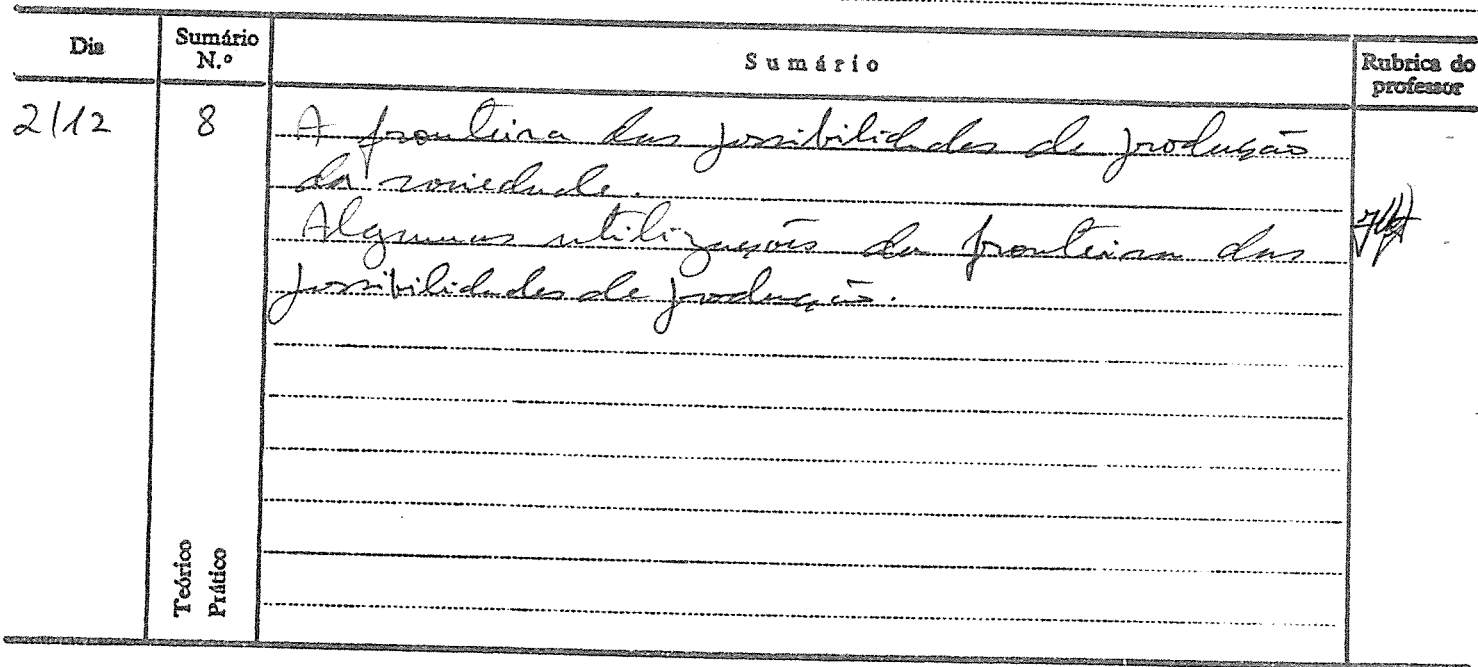 Dia
Sumário
N.º
Sumário
Rubrica do
professor
2/12
8
A fronteira das possibilidades de produção
da sociedade.
Algumas utilizações da fronteira das
possibilidades de produção.
Teórico
Prático